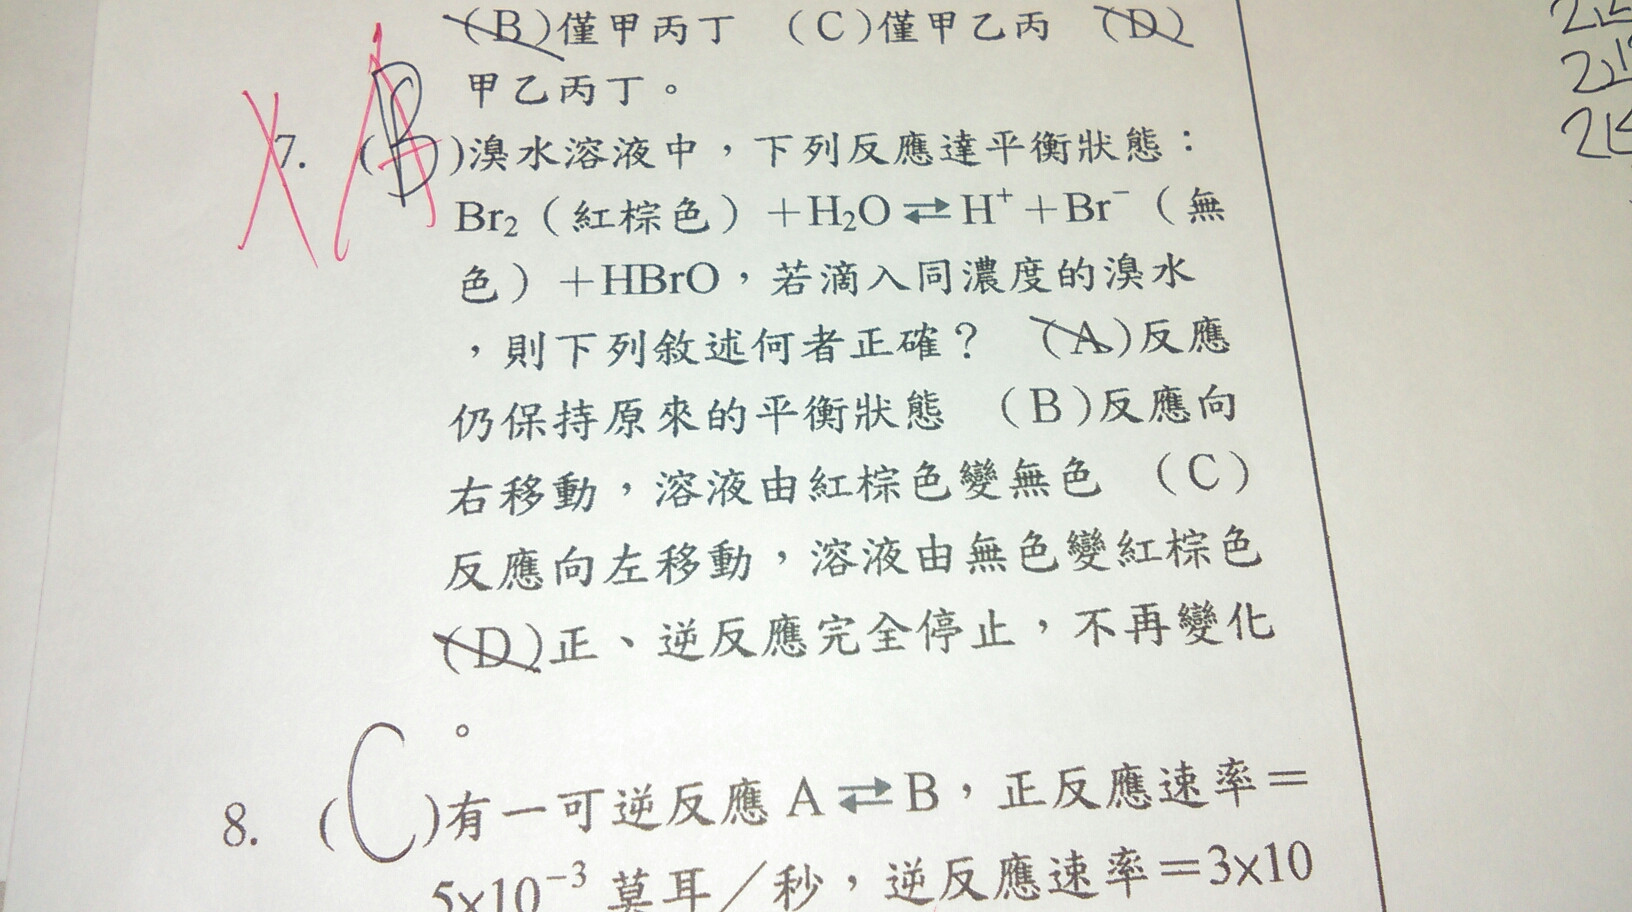 (B)僅甲丙丁 (C)僅甲乙丙 (D)
甲乙丙丁。
7. (B)溴水溶液中，下列反應達平衡狀態：
Br₂（紅棕色）+H₂O⇄H⁺+Br⁻（無
色）+HBrO，若滴入同濃度的溴水
，則下列敘述何者正確？ (A)反應
仍保持原來的平衡狀態 (B)反應向
右移動，溶液由紅棕色變無色 (C)
反應向左移動，溶液由無色變紅棕色
(D)正、逆反應完全停止，不再變化
。
8. (C)有一可逆反應A⇄B，正反應速率＝
5x10⁻³莫耳／秒，逆反應速率＝3x10